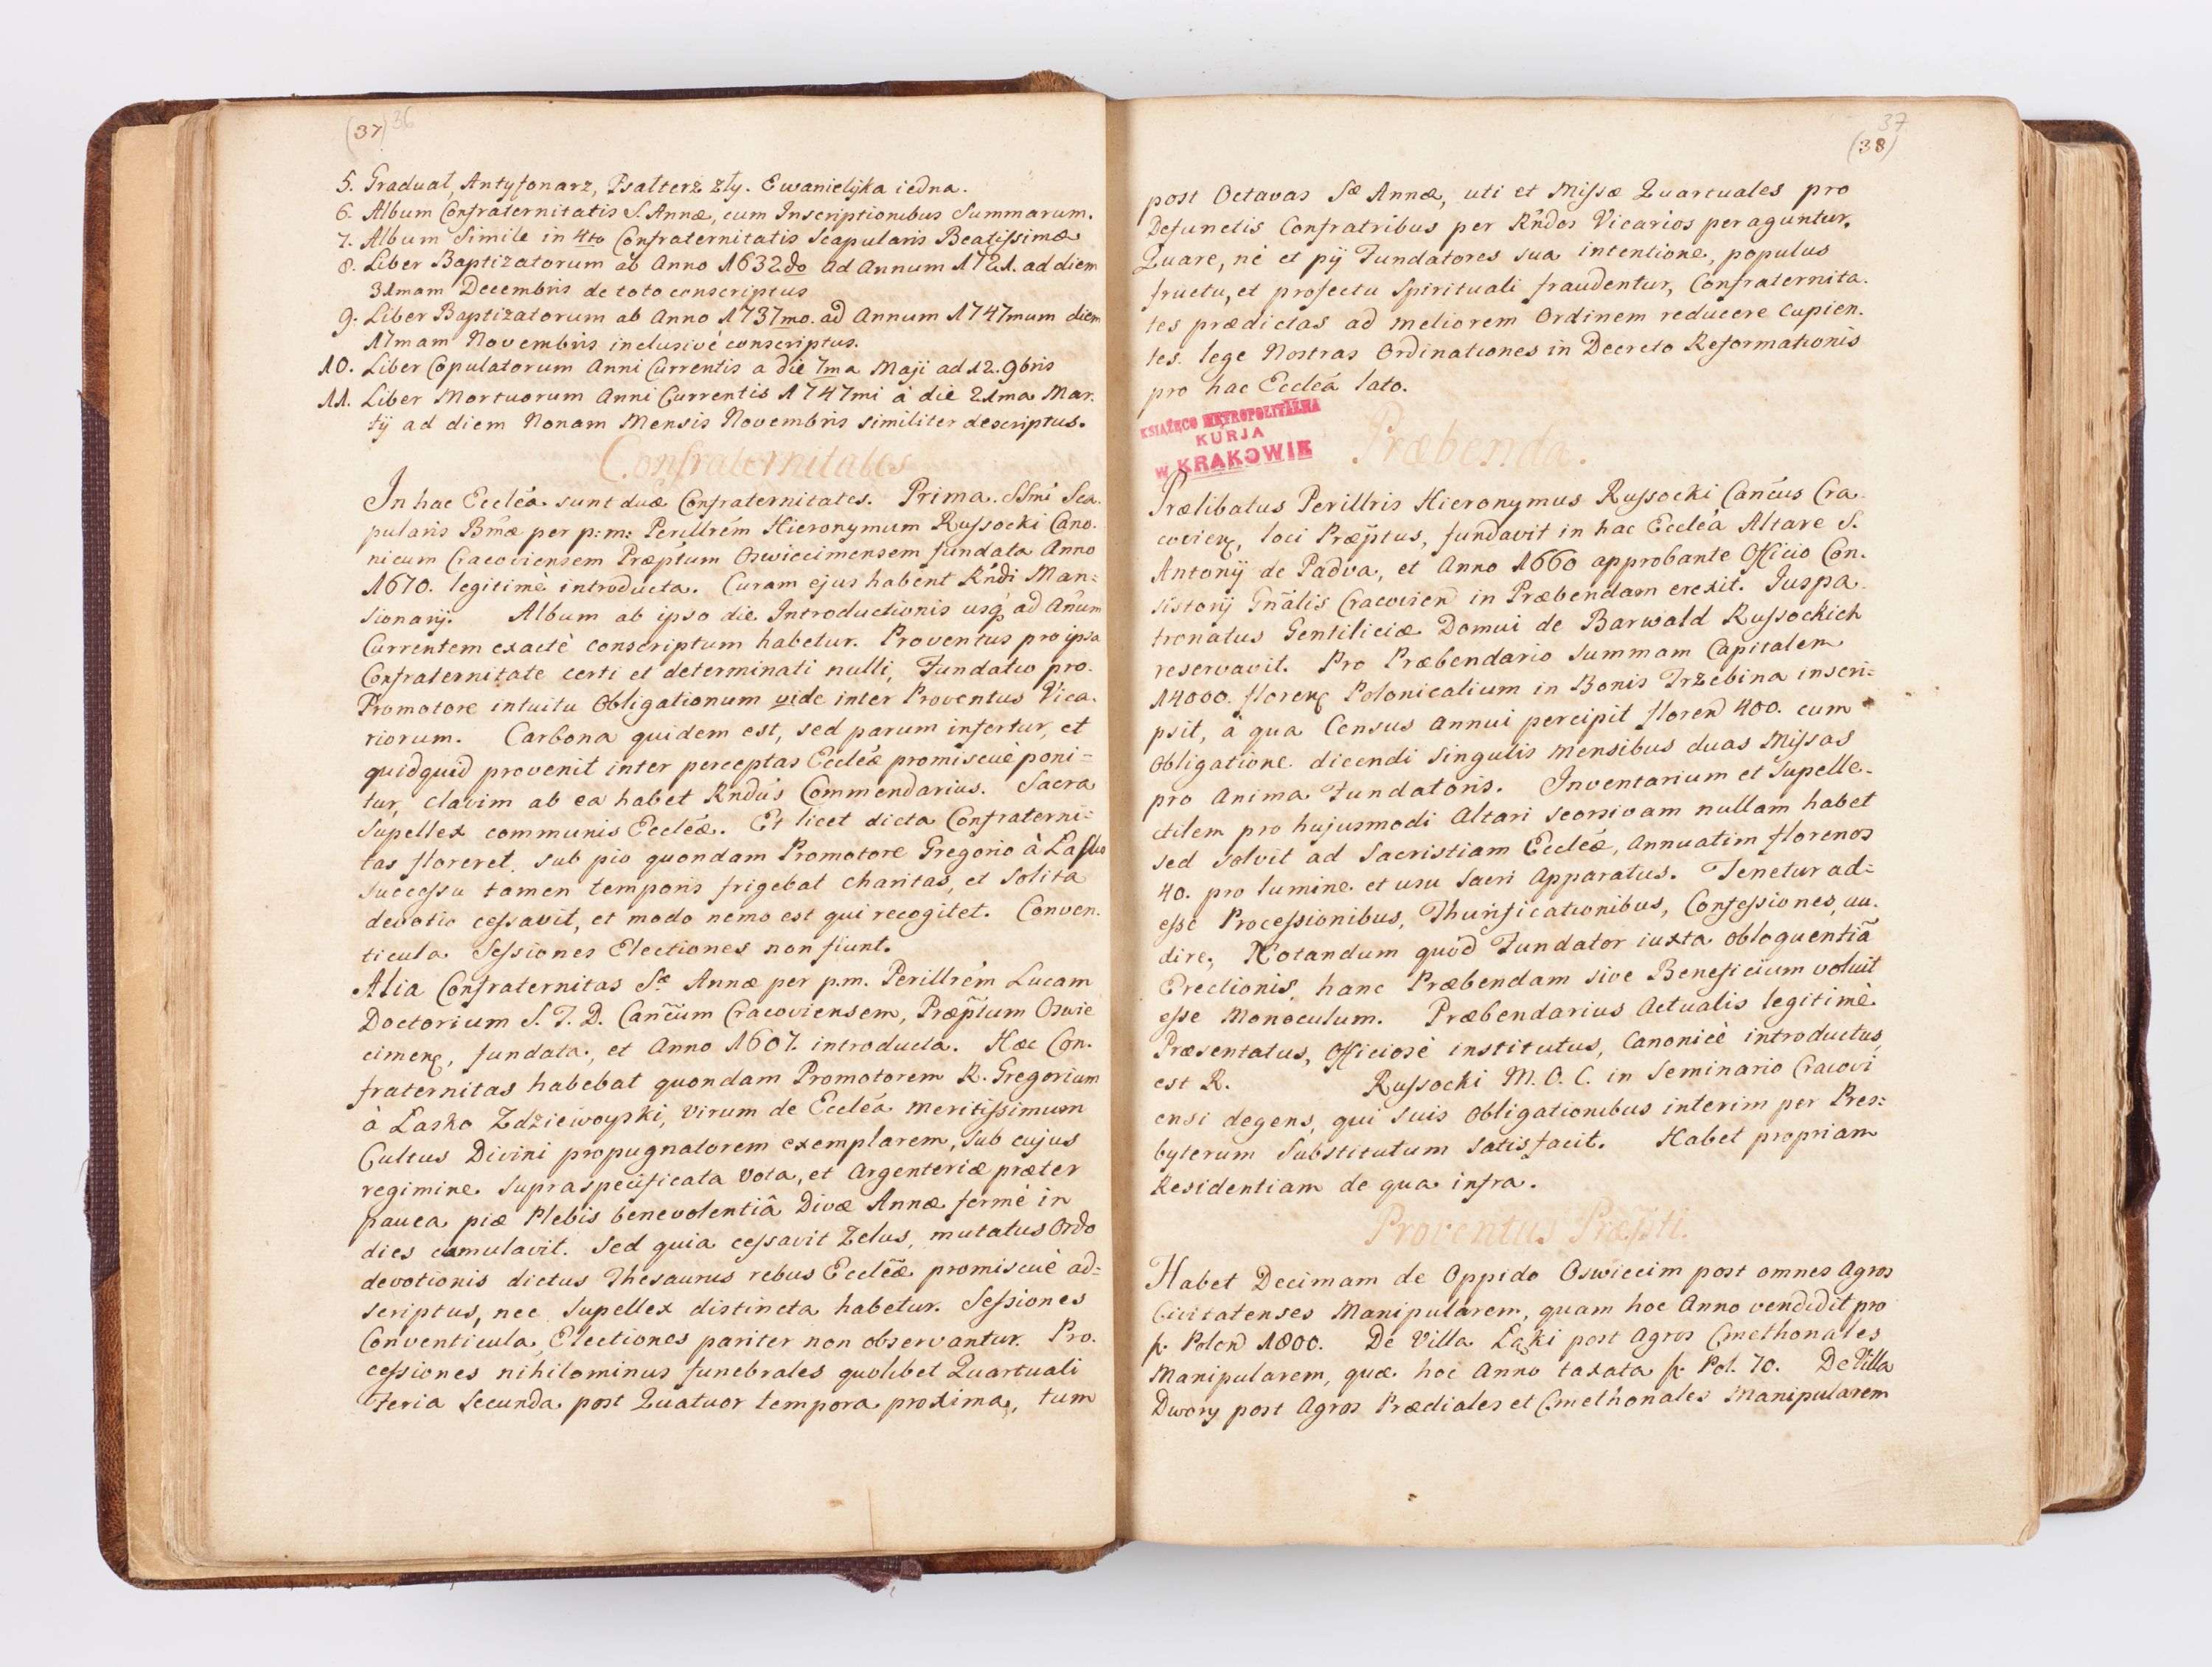 (37) 36
5. Gradual, Antyfonarz, Psałterz zły. Ewanielijka iedna.
6. Album Confraternitatis S. Annæ, cum Inscriptionibus Summarum.
7. Album Simile in 4to Confraternitatis Scapularis Beatissimæ
8. Liber Baptizatorum ab Anno 1632do ad Annum 1721. ad diem
31mam Decembris de toto conscriptus
9. Liber Baptizatorum ab Anno 1737mo. ad Annum 1747mum diem
17mam Novembris inclusivè conscriptus.
10. Liber Copulatorum Anni Currentis a die 7ma Maji ad 12. 9bris
11. Liber Mortuorum Anni Currentis 1747mi à die 21ma Mar.
tij ad diem Nonam Mensis Novembris similiter descriptus.
Confraternitates
In hac Eccleã sunt duæ Confraternitates. Prima SSmi Sca.
pularis Bmæ per p:m: Perillrem Hieronymum Russocki Cano.
nicum Cracoviensem Præptum Oswiecimensem fundata Anno
1670. legitimè introducta. Curam ejus habent Rndi Man:
sionarij. Album ab ipso die Introductionis usq ad Añum
Currentem exactè conscriptum habetur. Proventus pro ipsa
Confraternitate certi et determinati nulli, Fundatio pro.
Promotore intuitu Obligationum vide inter Proventus Vica.
riorum. Carbona quidem est, sed parum infertur, et
quidquid provenit inter perceptas Eccleæ promiscuè poni=
tur, clavim ab ea habet Rndus Commendarius. Sacra
Supellex communis Eccleæ. Et licet dicta Confraterni=
tas floreret sub pio quondam Promotore Gregorio à Lasko
successu tamen temporis frigebat charitas, et solita
devotio cessavit, et modo nemo est qui recogitet. Conven.
ticula Sessiones Electiones non fiunt.
Alia Confraternitas Sæ Annæ per p.m. Perillrem Lucam
Doctorium S. T. D. Cañcum Cracoviensem, Præptum Oswie
cimen, fundata, et Anno 1607. introducta. Hæc Con.
fraternitas habebat quondam Promotorem R. Gregorium
à Lasko Zdziewoyski, virum de Eccleã meritissimum
Cultus Divini propugnatorem exemplarem, sub cujus
regimine supraspecificata vota, et Argenteriæ præter
pauca piæ Plebis benevolentiâ Divæ Annæ fermè in
dies cumulavit. Sed quia cessavit Zelus, mutatus Ordo
devotionis dictus Thesaurus rebus Eccleæ promiscuè ad=
scriptus, nec supellex distincta habetur. Sessiones
Conventicula, Electiones pariter non observantur. Pro.
cessiones nihilominus funebrales quolibet Quartuali
Feria Secunda post Quatuor tempora proxima, tum
37
(38)
post Octavas Sæ Annæ, uti et Missæ Quartuales pro
Defunctis Confratribus per Rndos Vicarios peraguntur.
Quare, nè et pij Fundatores sua intentione, populus
fructu, et profectu Spirituali fraudentur, Confraternita.
tes prædictas ad meliorem Ordinem reducere cupien.
tes. lege Nostras Ordinationes in Decreto Reformationis
pro hac Eccleã lato.
KSIĄŻĘCO METROPOLITALNA
KURJA
w KRAKOWIE
Præbenda.
Prælibatus Perillris Hieronymus Russocki Cancus Cra.
covien, loci Præptus, fundavit in hac Eccleã Altare S.
Antonij de Padva, et Anno 1660 approbante Officio Con.
sistorij Gñalis Cracovien in Præbendam erexit. Juspa.
tronatus Gentiliciæ Domui de Barwald Russockich
reservavit. Pro Præbendario summam Capitalem
14000. floren Polonicalium in Bonis Trzebina inscri=
psit, à qua Census annui percipit floren 400. cum
obligatione dicendi singulis mensibus duas Missas
pro Anima Fundatoris. Inventarium et Supelle.
ctilem pro hujusmodi Altari seorsivam nullam habet
sed solvit ad Sacristiam Eccleæ, Annuatim florenos
40. pro lumine et usu Sacri Apparatus. Tenetur ad=
esse Processionibus, Thurificationibus, Confessiones, au.
dire, Notandum quòd Fundator iuxta obloquentiã
Erectionis, hanc Præbendam sive Beneficium voluit
esse Monoculum. Præbendarius Actualis legitimè
Præsentatus, Officiosè institutus, Canonicè introductus,
est R. Russocki M. O. C. in Seminario Cracovi
ensi degens, qui suis obligationibus interim per Pres=
byterum Substitutum satisfacit. Habet propriam
Residentiam de qua infra.
Proventus Præpti.
Habet Decimam de Oppido Oswiecim post omnes Agros
Civitatenses Manipularem, quam hoc Anno vendidit pro
f. Polon 1800. De Villa Łąki post Agros Cmethonales
Manipularem, quæ hoc Anno taxata f. Pol. 70. De Villa
Dwory post Agros Prædiales et Cmethonales Manipularem